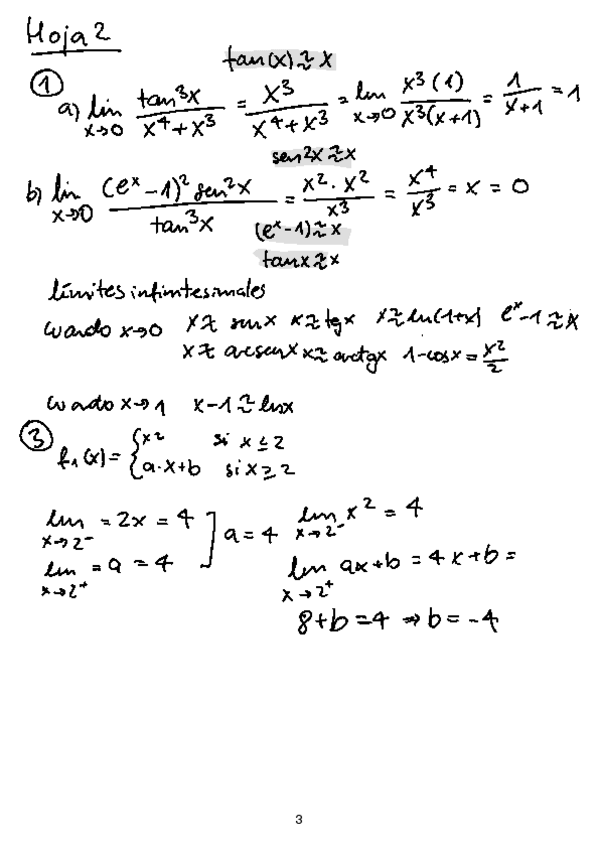 Hoja 2
tan(x) ≈ x
① a) lim x→0 tan³x / (x⁴+x³) = x³ / (x⁴+x³) = lim x→0 x³(1) / x³(x+1) = 1 / (x+1) = 1
sen²x ≈ x
b) lim x→0 (eˣ-1)² sen²x / tan³x = x²·x² / x³ = x⁴ / x³ = x = 0
(eˣ-1) ≈ x
tanx ≈ x
límites infinitesimales
cuando x→0 x ≈ senx x ≈ tgx x ≈ ln(1+x) eˣ-1 ≈ x
x ≈ arcsenx x ≈ arctgx 1-cosx = x²/2
cuando x→1 x-1 ≈ lnx
③ f₁(x) = { x² si x ≤ 2
a·x+b si x ≥ 2
lim x→2⁻ = 2x = 4
lim x→2⁺ = a = 4 ] a = 4
lim x→2⁻ x² = 4
lim x→2⁺ ax+b = 4x+b =
8+b = 4 ⇒ b = -4
3